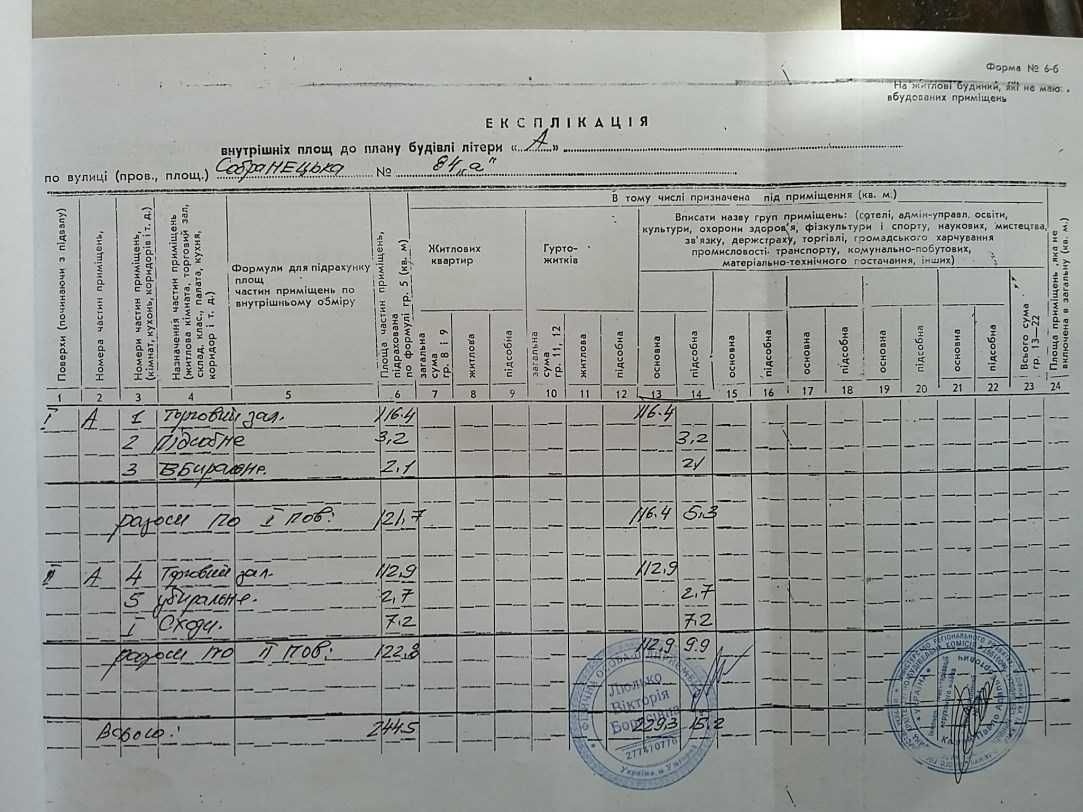 Форма № 6-б
На житлові будинки, які не маю
вбудованих приміщень
ЕКСПЛІКАЦІЯ
внутрішніх площ до плану будівлі літери «А»
по вулиці (пров., площ.) Собранецька № 84 „а"
Поверхи (починаючи з підвалу)
Номера частин приміщень,
Номери частин приміщень, (кімнат, кухонь, коридорів і т. д.)
Назначення частин приміщень (житлова кімната, торговий зал, склад, клас., палата, кухня, коридор і т. д.)
Формули для підрахунку
площ
частин приміщень по
внутрішньому обміру
Площа частин приміщень, підрахована по формулі гр. 5 (кв. м)
В тому числі призначена під приміщення (кв. м.)
Житлових
квартир
Гурто-
житків
Вписати назву груп приміщень: (готелі, адмін-управл. освіти,
культури, охорони здоров'я, фізкультури і спорту, наукових, мистецтва,
зв'язку, держстраху, торгівлі, громадського харчування
промисловості транспорту, комунально-побутових,
матеріально-технічного постачання, інших)
загальна сума гр. 8 і 9
житлова
підсобна
загальна сума гр. 11, 12
житлова
підсобна
основна
підсобна
основна
підсобна
основна
підсобна
основна
підсобна
основна
підсобна
Всього сума гр. 13—22
Площа приміщень, яка не включена в загальну (кв. м.)
1 2 3 4 5 6 7 8 9 10 11 12 13 14 15 16 17 18 19 20 21 22 23 24
І А 1 Торговий зал. 116.4 116.4
2 Підсобне 3,2 3,2
3 Вбиральне. 2,1 2,1
разом по І пов: 121,7 116.4 5,3
ІІ А 4 Торговий зал. 112,9 112,9
5 убиральне. 2,7 2,7
І Сходи. 7.2 7,2
разом по ІІ пов: 122,8 112,9 9.9
Всього: 244.5 229.3 15.2
ФІЗИЧНА ОСОБА ПІДПРИЄМЕЦЬ
Люлько
Вікторія
Україна м Ужгород
УКРАЇНА